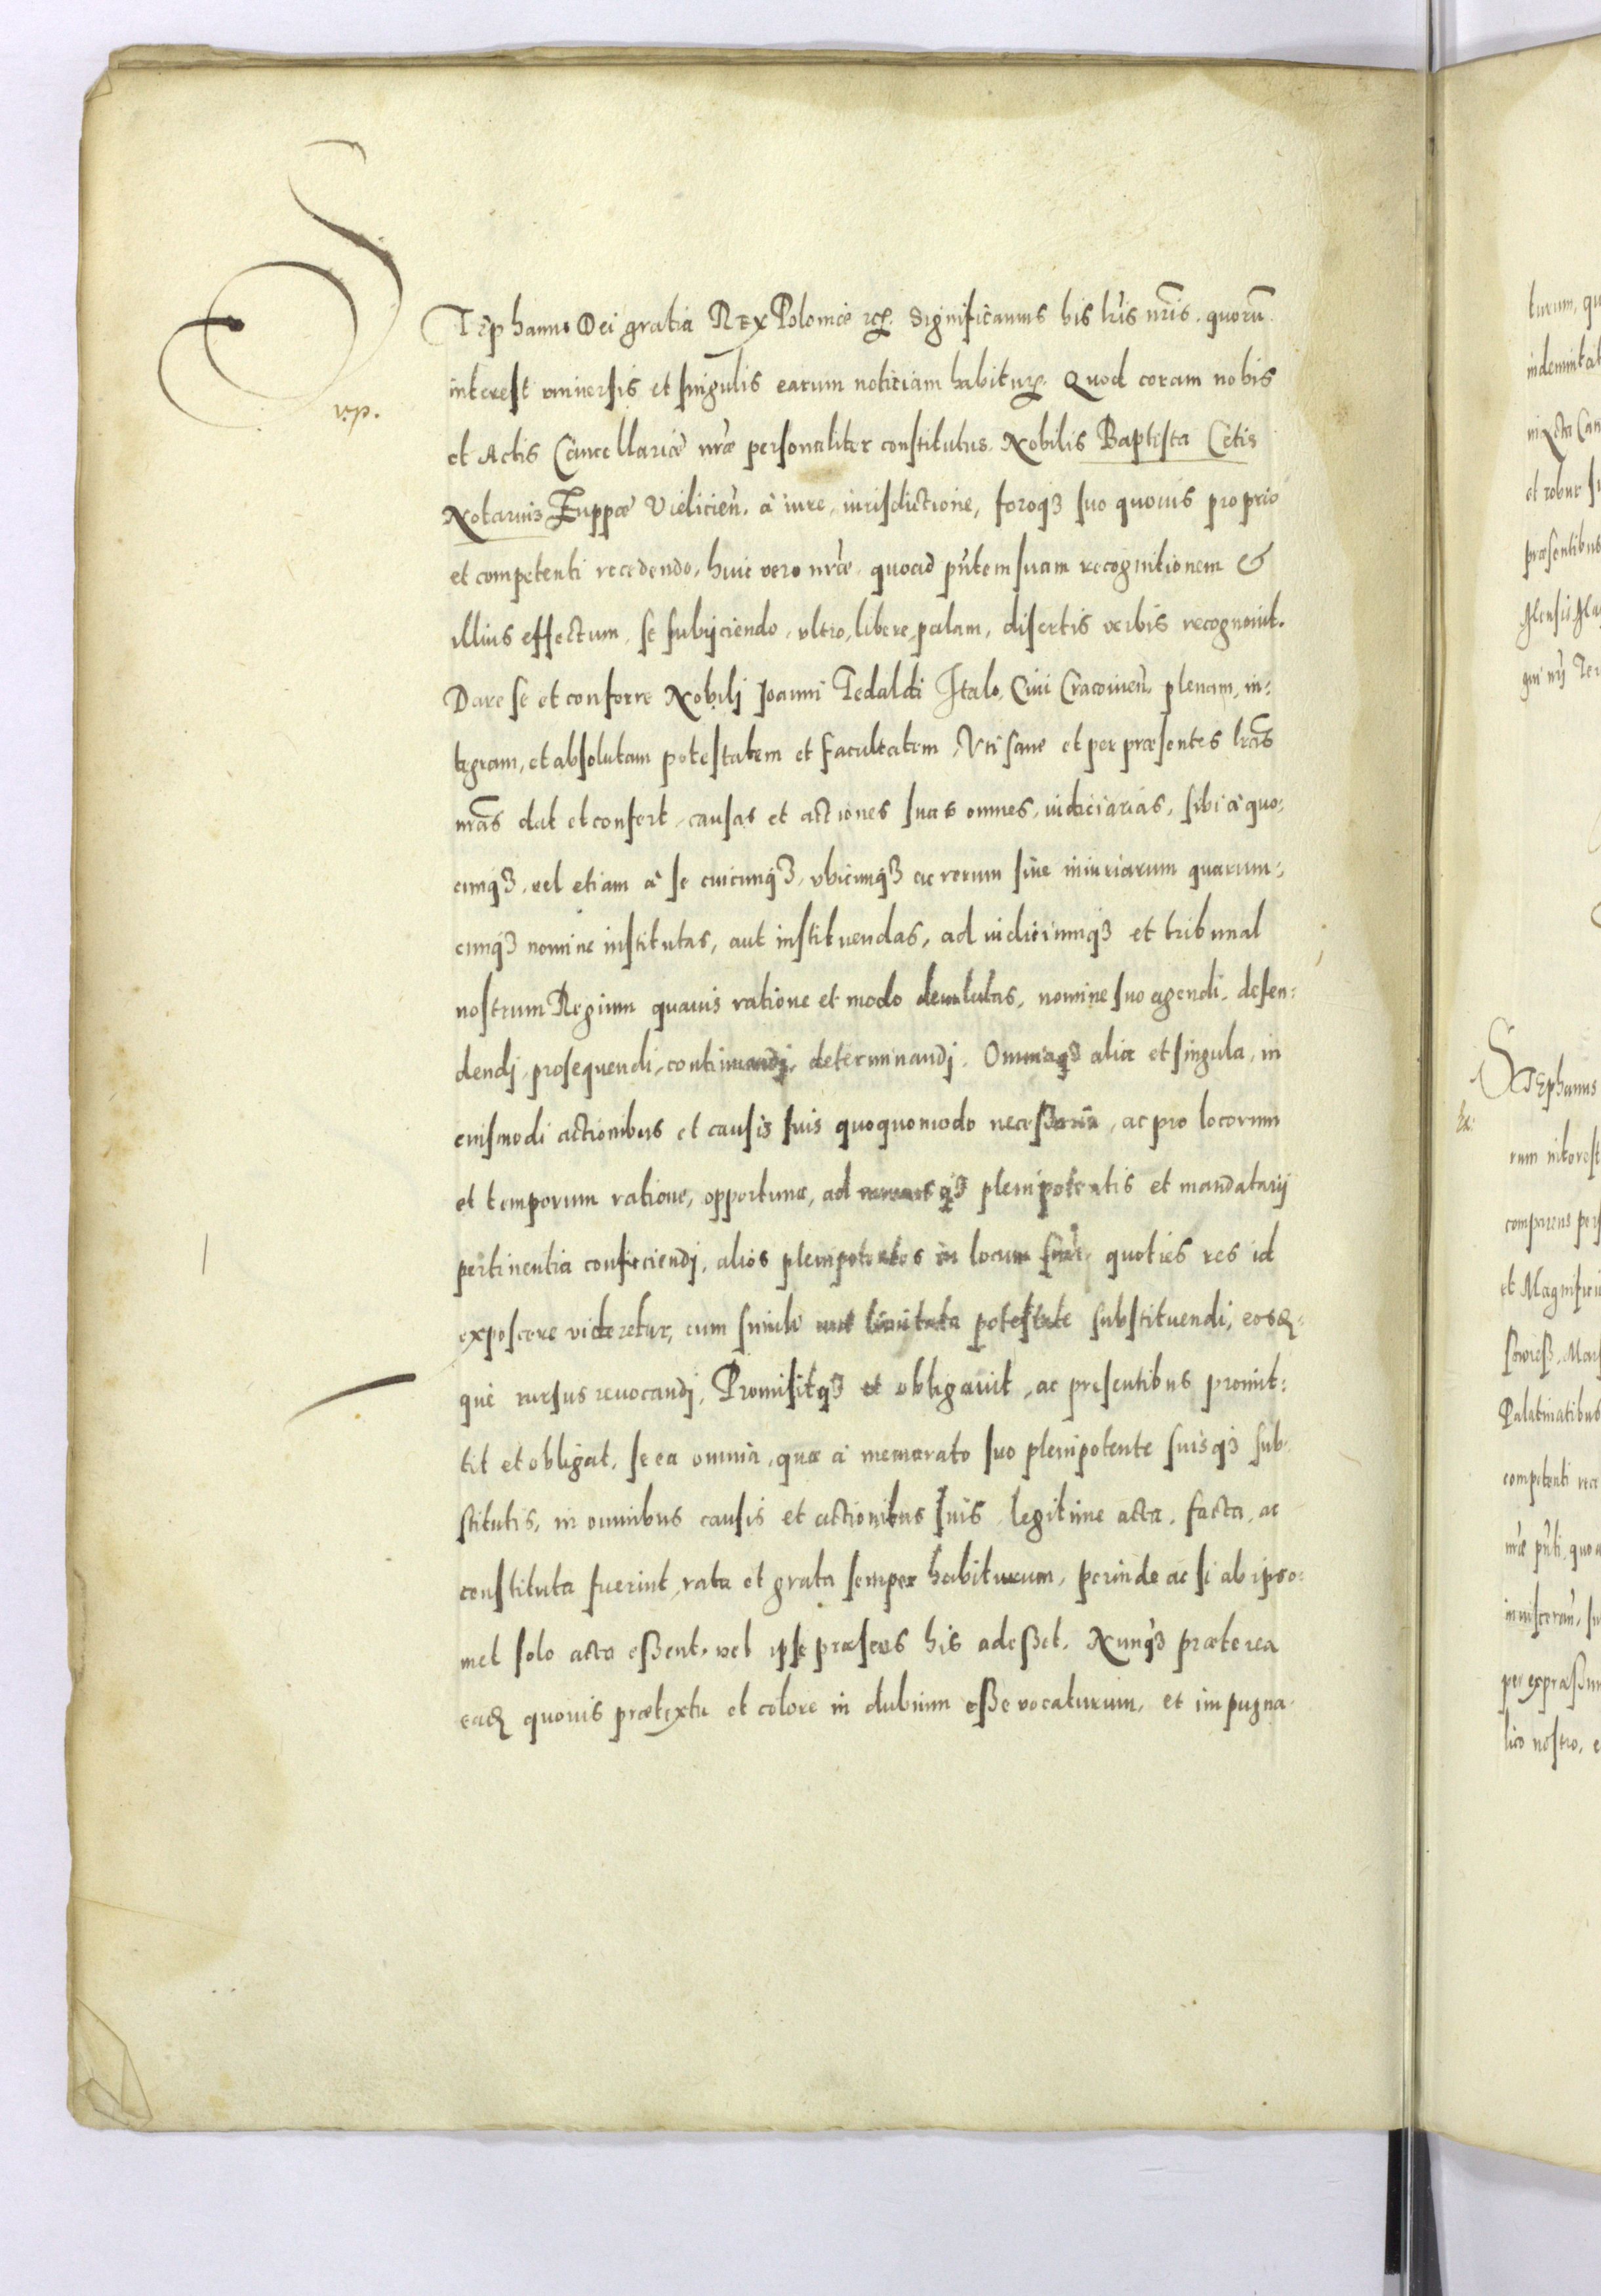 STEphanus Dei gratia REx Poloniæ etc. Significamus his lr̃is nr̃is. quorũ
interest vniuersis et singulis earum noticiam habituris. Quod coram nobis
vrp.
et Actis Cancellariæ nr̃æ personaliter constitutus. Nobilis Baptista Cetis
Notarius Zuppæ Vielicien̄. à iure, iurisdictione, foroqȝ suo quouis proprio
et competenti recedendo, huic vero nr̃æ, quoad pñtem suam recognitionem &
illius effectum, se subijciendo, vltro, libere, palam, disertis verbis recognouit.
Dare se et conferre Nobilj Joanni Tedaldi Italo, Ciui Cracouien̄. plenam, in:
tegram, et absolutam potestatem et facultatem, Vti sane et per præsentes lr̃as
nr̃as dat et confert, causas et actiones suas omnes, iudiciarias, sibi à quo:
cunqȝ, vel etiam à se cuicunqȝ, vbicunqȝ ac rerum siue iniuriarum quarum:
cunqȝ nomine institutas, aut instituendas, ad iudiciumqȝ et tribunal
nostrum Regium quauis ratione et modo deuolutas, nomine suo agendi, defen:
dendj, prosequendi, continuandj, determinandj. Omniaqȝ alia et singula, in
eiusmodi actionibus et causis suis quoquomodo necessaria, ac pro locorum
et temporum ratione, opportuna, ad plenipotentis et mandatarij
pertinentia conficiendj, alios plenipotentes in locum sui, quoties res id
exposcere videretur, cum simili aut limitata potestate substituendi, eosq:
que rursus reuocandj. Promisitqȝ et obligauit, ac presentibus promit:
tit et obligat, se ea omnia, quæ à memorato suo plenipotente suisqȝ sub:
stitutis, in omnibus causis et actionibus suis, legitime acta, facta, ac
constituta fuerint, rata et grata semper habiturum, perinde ac si ab ipso:
met solo acta eßent, vel ipse præsens his adeßet. Nunqȝ præterea
eaq quouis prætextu et colore in dubium eße vocaturum, et impugna.
turum, qu
et robur
præsentibus
STEphanus
rum interest
comparens pers
et Magnific
Palatinatibus
competenti rece
nr̃æ pñti, quoa
per expræßum
lico nostro, e